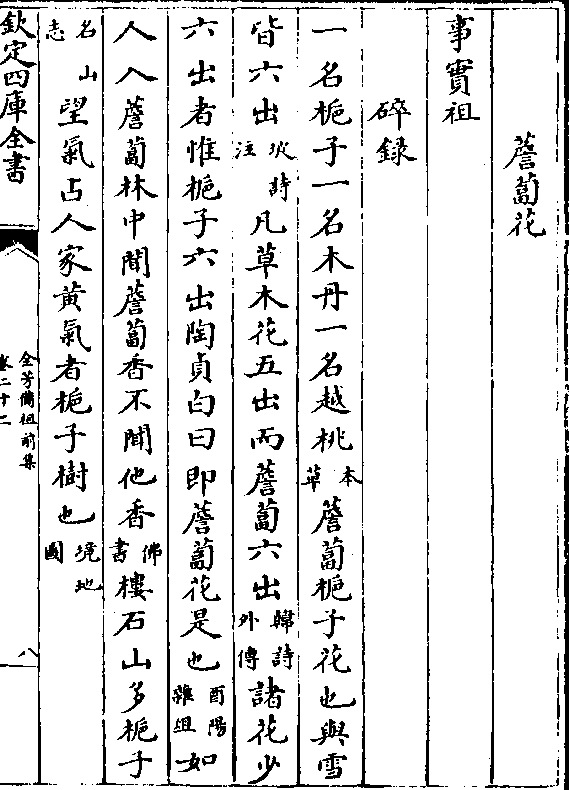 薝蔔花
事實祖
碎錄
一名梔子一名木丹一名越桃本草薝蔔梔子花也與雪
皆六出坡詩注凡草木花五出而薝蔔六出韓詩外傳諸花少
六出者惟梔子六出陶貞白曰即薝蔔花是也酉陽雜俎如
人入薝蔔林中聞薝蔔香不聞他香佛書樓石山多梔子
名山志望氣占人家黃氣者梔子樹也境地圖
欽定四庫全書
全芳備祖前集
卷二十二
八